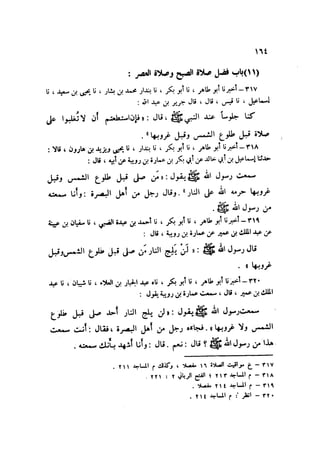 ١٦٤
(١١) باب فضل صلاة الصبح وصلاة العصر :
٣١٧ – أخبرنا أبو طاهر ، نا أبو بكر ، نا بندار محمد بن بشار ، نا يحيى بن سعيد ، نا
إسماعيل ، نا قيس ، قال ، قال جرير بن عبد الله :
كنا جلوساً عند النبي ﷺ ، قال : « إن استطعتم أن لا تغلبوا على
صلاة قبل طلوع الشمس وقبل غروبها » .
٣١٨ – أخبرنا أبو طاهر ، نا أبو بكر ، نا بندار ، نا يحيى ويزيد بن هارون ، قالا :
حدثنا إسماعيل بن أبي خالد عن أبي بكر بن عمارة بن رويبة عن أبيه ، قال :
سمعت رسول الله ﷺ يقول : « من صلى قبل طلوع الشمس وقبل
غروبها حرمه الله على النار » . وقال رجل من أهل البصرة : وأنا سمعته
من رسول الله ﷺ .
٣١٩ – أخبرنا أبو طاهر ، نا أبو بكر ، نا أحمد بن عبدة الضبي ، نا سفيان بن عيينة
عن عبد الملك بن عمير عن عمارة بن رويبة ، قال :
قال رسول الله ﷺ : « لن يلج النار من صلى قبل طلوع الشمس وقبل
غروبها » .
٣٢٠ – أخبرنا أبو طاهر ، نا أبو بكر ، ناه عبد الجبار بن العلاء ، نا شيبان ، نا عبد
الملك بن عمير ، قال ، سمعت عمارة بن رويبة يقول :
سمعت رسول الله ﷺ يقول : « لن يلج النار أحد صلى قبل طلوع
الشمس ولا غروبها » . فجاءه رجل من أهل البصرة ، فقال : أنت سمعت
هذا من رسول الله ﷺ ؟ قال : نعم . قال : وأنا أشهد بأنك سمعته .
٣١٧ – خ مواقيت الصلاة ١٦ مفصلا ، وكذلك م المساجد ٢١١ .
٣١٨ – م المساجد ٢١٣ ؛ الفتح الرباني ٢ : ٢٢١ .
٣١٩ – م المساجد ٢١٤ مفصلا .
٣٢٠ – انظر : م المساجد ٢١٤ .